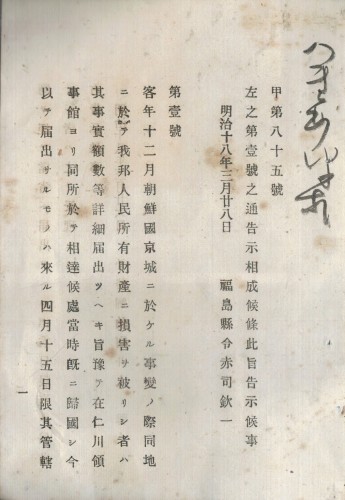 甲第八十五號
左之第壹號之通告示相成候條此旨告示候事
明治十八年三月廿八日　福島縣令赤司欽一
第壹號
客年十二月朝鮮國京城ニ於ケル事變ノ際同地
ニ於テ我邦人民所有財產ニ損害ヲ被リシ者ハ
其事實額數等詳細届出ツヘキ旨豫テ在仁川領
事館ヨリ同所於テ相達候處當時旣ニ歸國シ今
以テ届出サルモノハ來ル四月十五日限其管轄
一